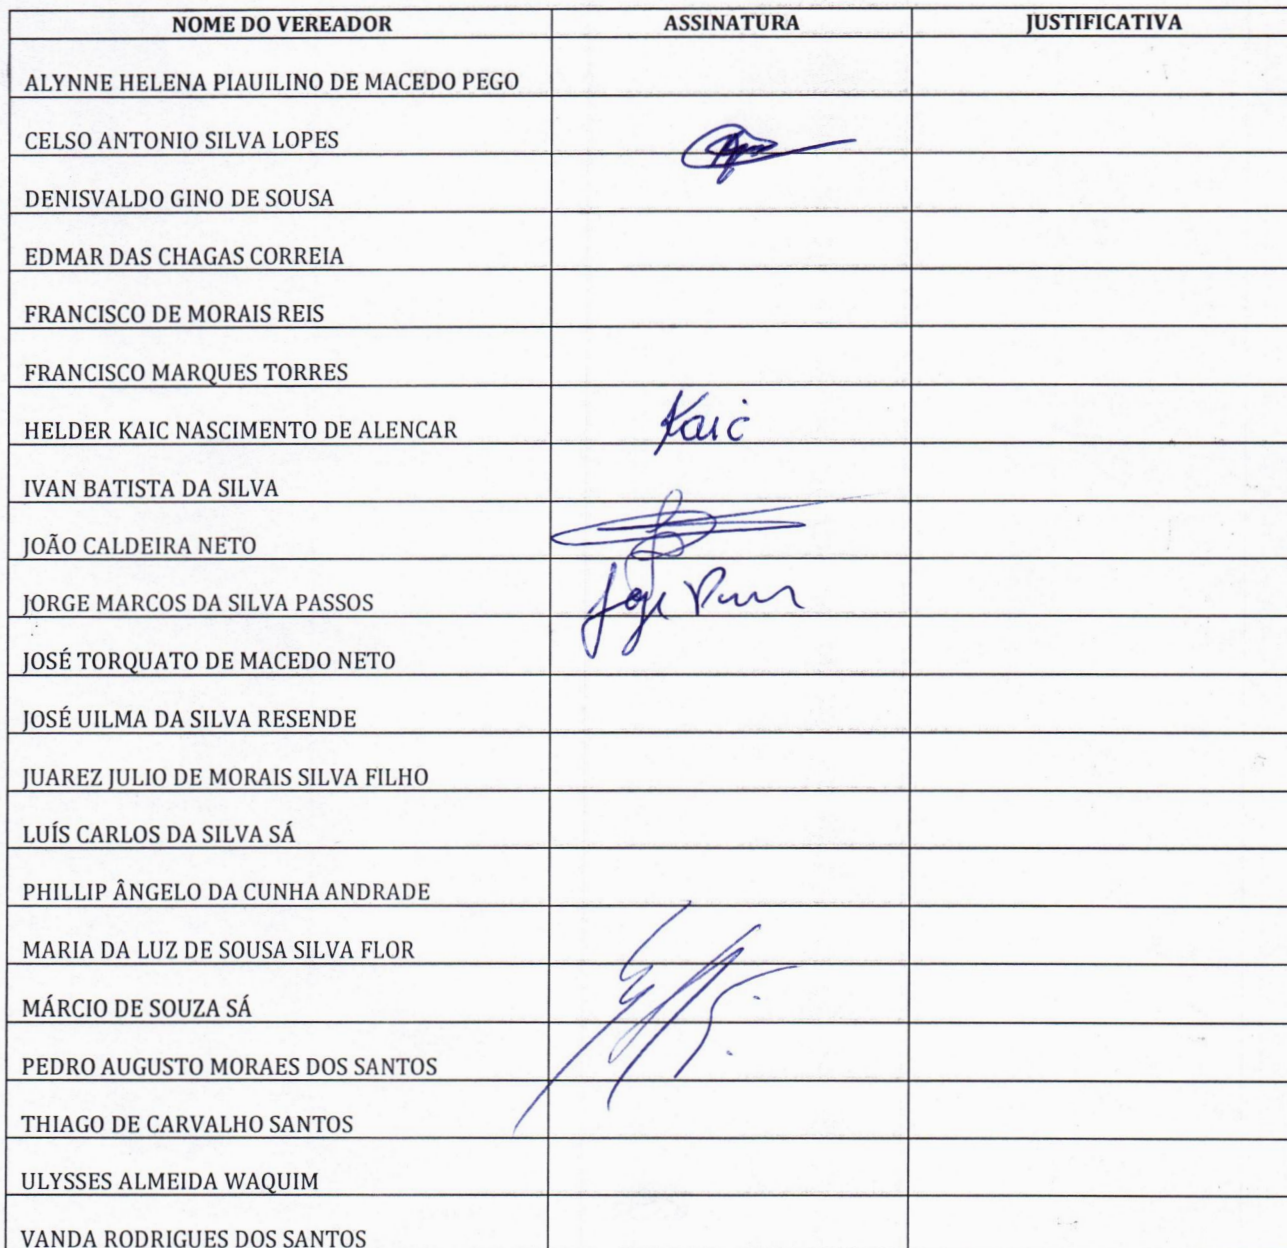 NOME DO VEREADOR ASSINATURA JUSTIFICATIVA
ALYNNE HELENA PIAUILINO DE MACEDO PEGO
CELSO ANTONIO SILVA LOPES
DENISVALDO GINO DE SOUSA
EDMAR DAS CHAGAS CORREIA
FRANCISCO DE MORAIS REIS
FRANCISCO MARQUES TORRES
HELDER KAIC NASCIMENTO DE ALENCAR Kaic
IVAN BATISTA DA SILVA
JOÃO CALDEIRA NETO
JORGE MARCOS DA SILVA PASSOS
JOSÉ TORQUATO DE MACEDO NETO
JOSÉ UILMA DA SILVA RESENDE
JUAREZ JULIO DE MORAIS SILVA FILHO
LUÍS CARLOS DA SILVA SÁ
PHILLIP ÂNGELO DA CUNHA ANDRADE
MARIA DA LUZ DE SOUSA SILVA FLOR
MÁRCIO DE SOUZA SÁ
PEDRO AUGUSTO MORAES DOS SANTOS
THIAGO DE CARVALHO SANTOS
ULYSSES ALMEIDA WAQUIM
VANDA RODRIGUES DOS SANTOS